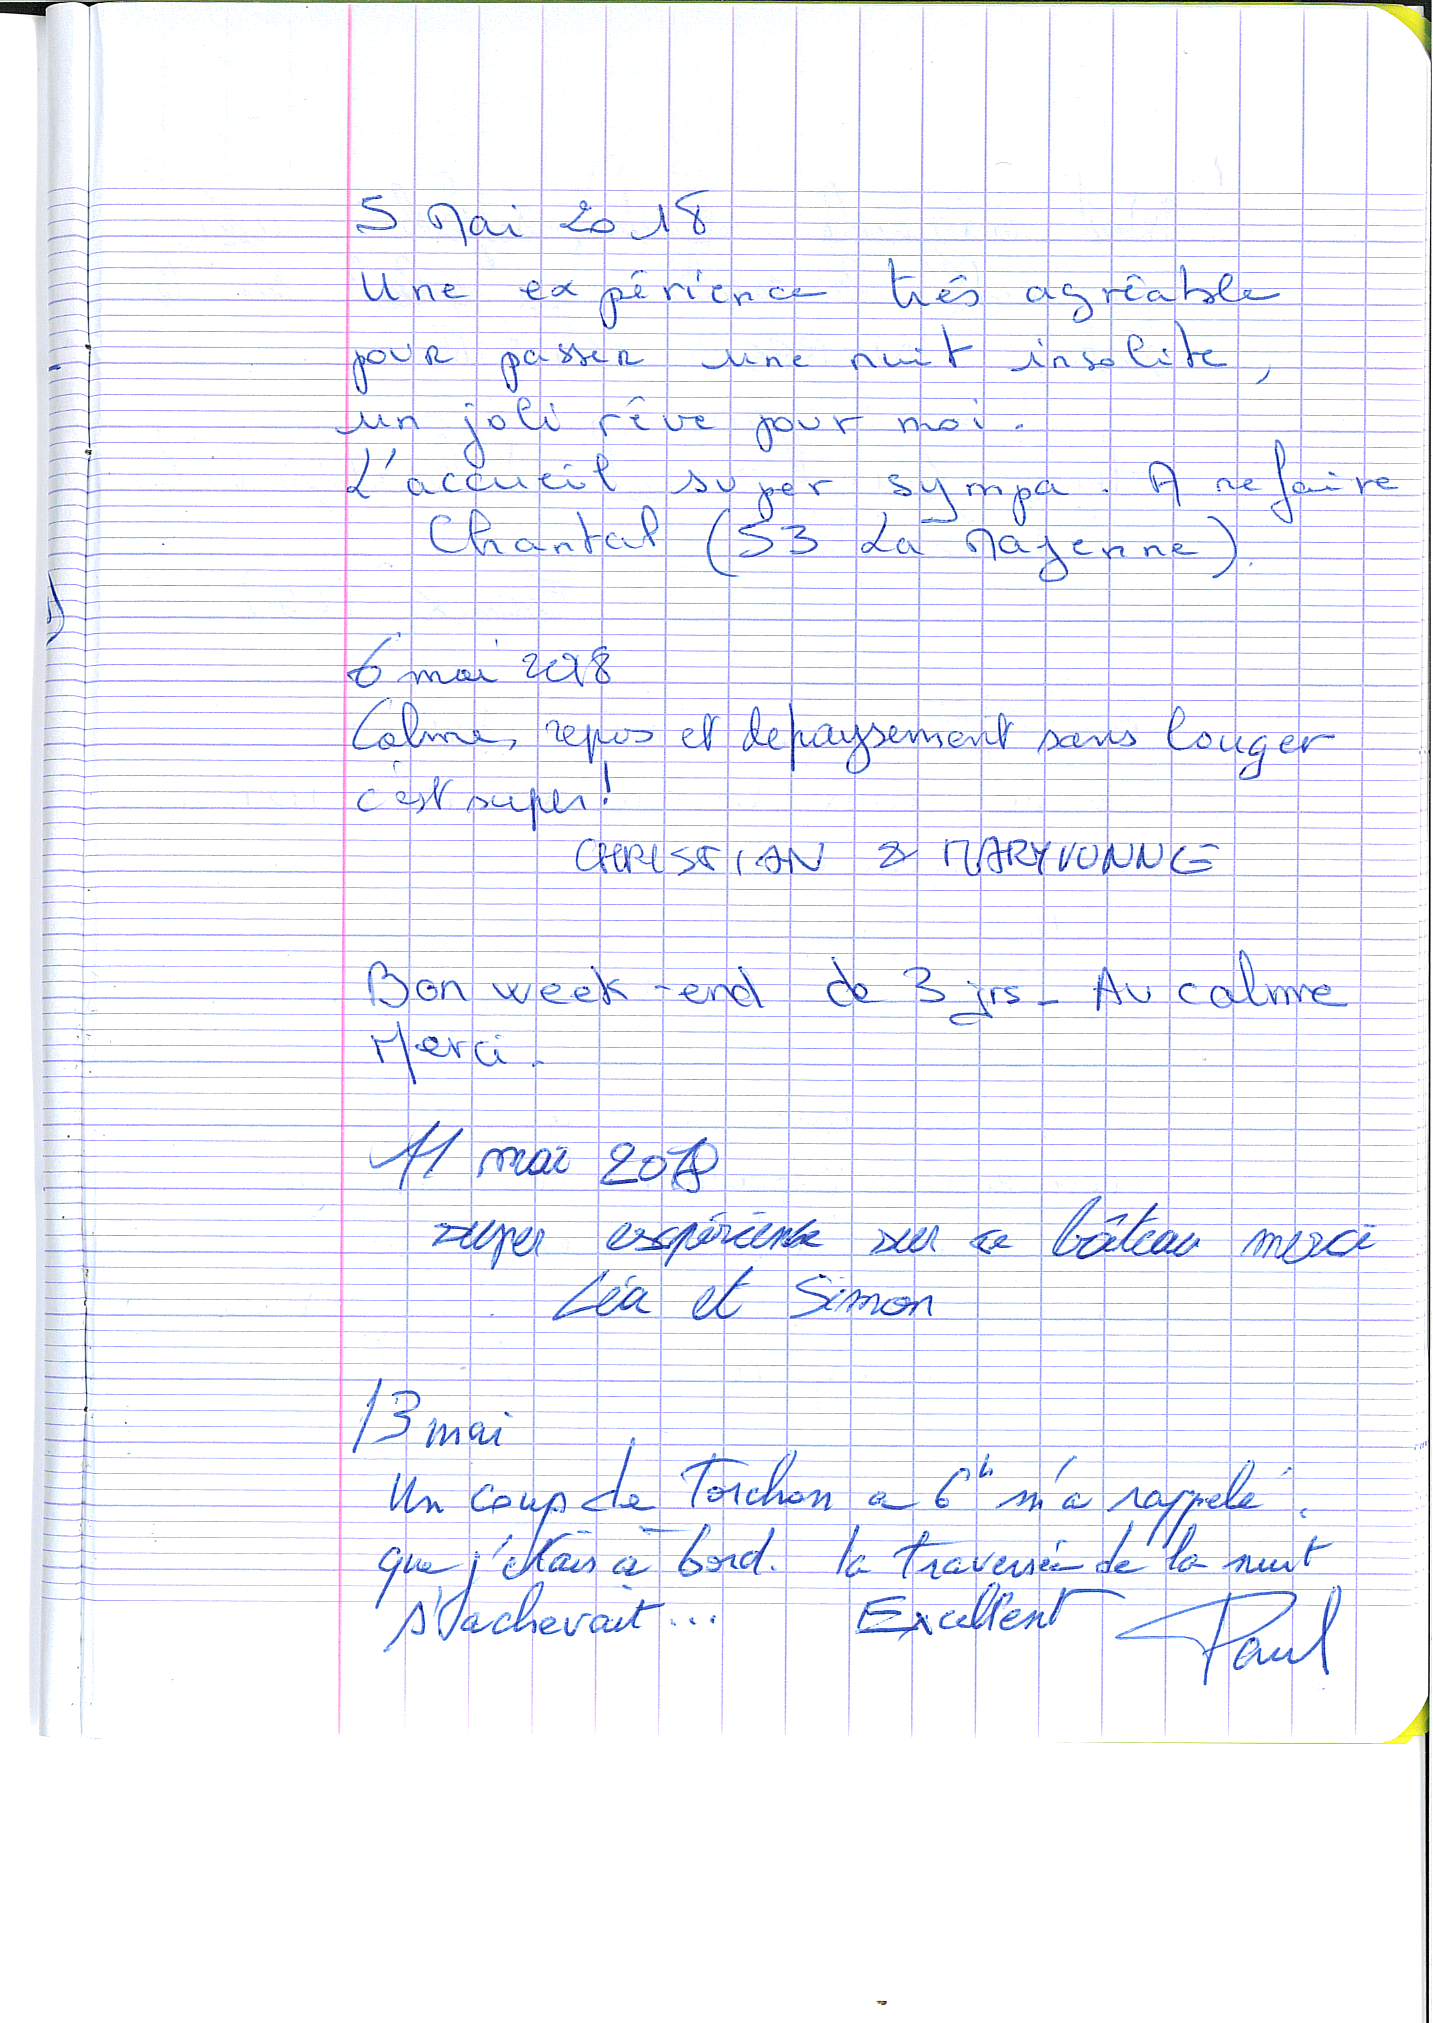 5 Mai 2018
Une expérience très agréable
pour passer une nuit insolite,
un joli rêve pour moi.
L'accueil super sympa. A refaire
Chantal (53 La Mayenne).
6 mai 2018
Calme, repos et depaysement sans bouger
c'est super!
CHRISTIAN & MARYVONNE
Bon week-end de 3 jrs - Au calme
Merci.
11 mai 2018
super expérience sur ce bâteau merci
Léa et Simon
13 mai
Un coup de Torchon a 6h m'a rappelé
que j'étais à bord. la traversée de la nuit
s'achevait... Excellent Paul